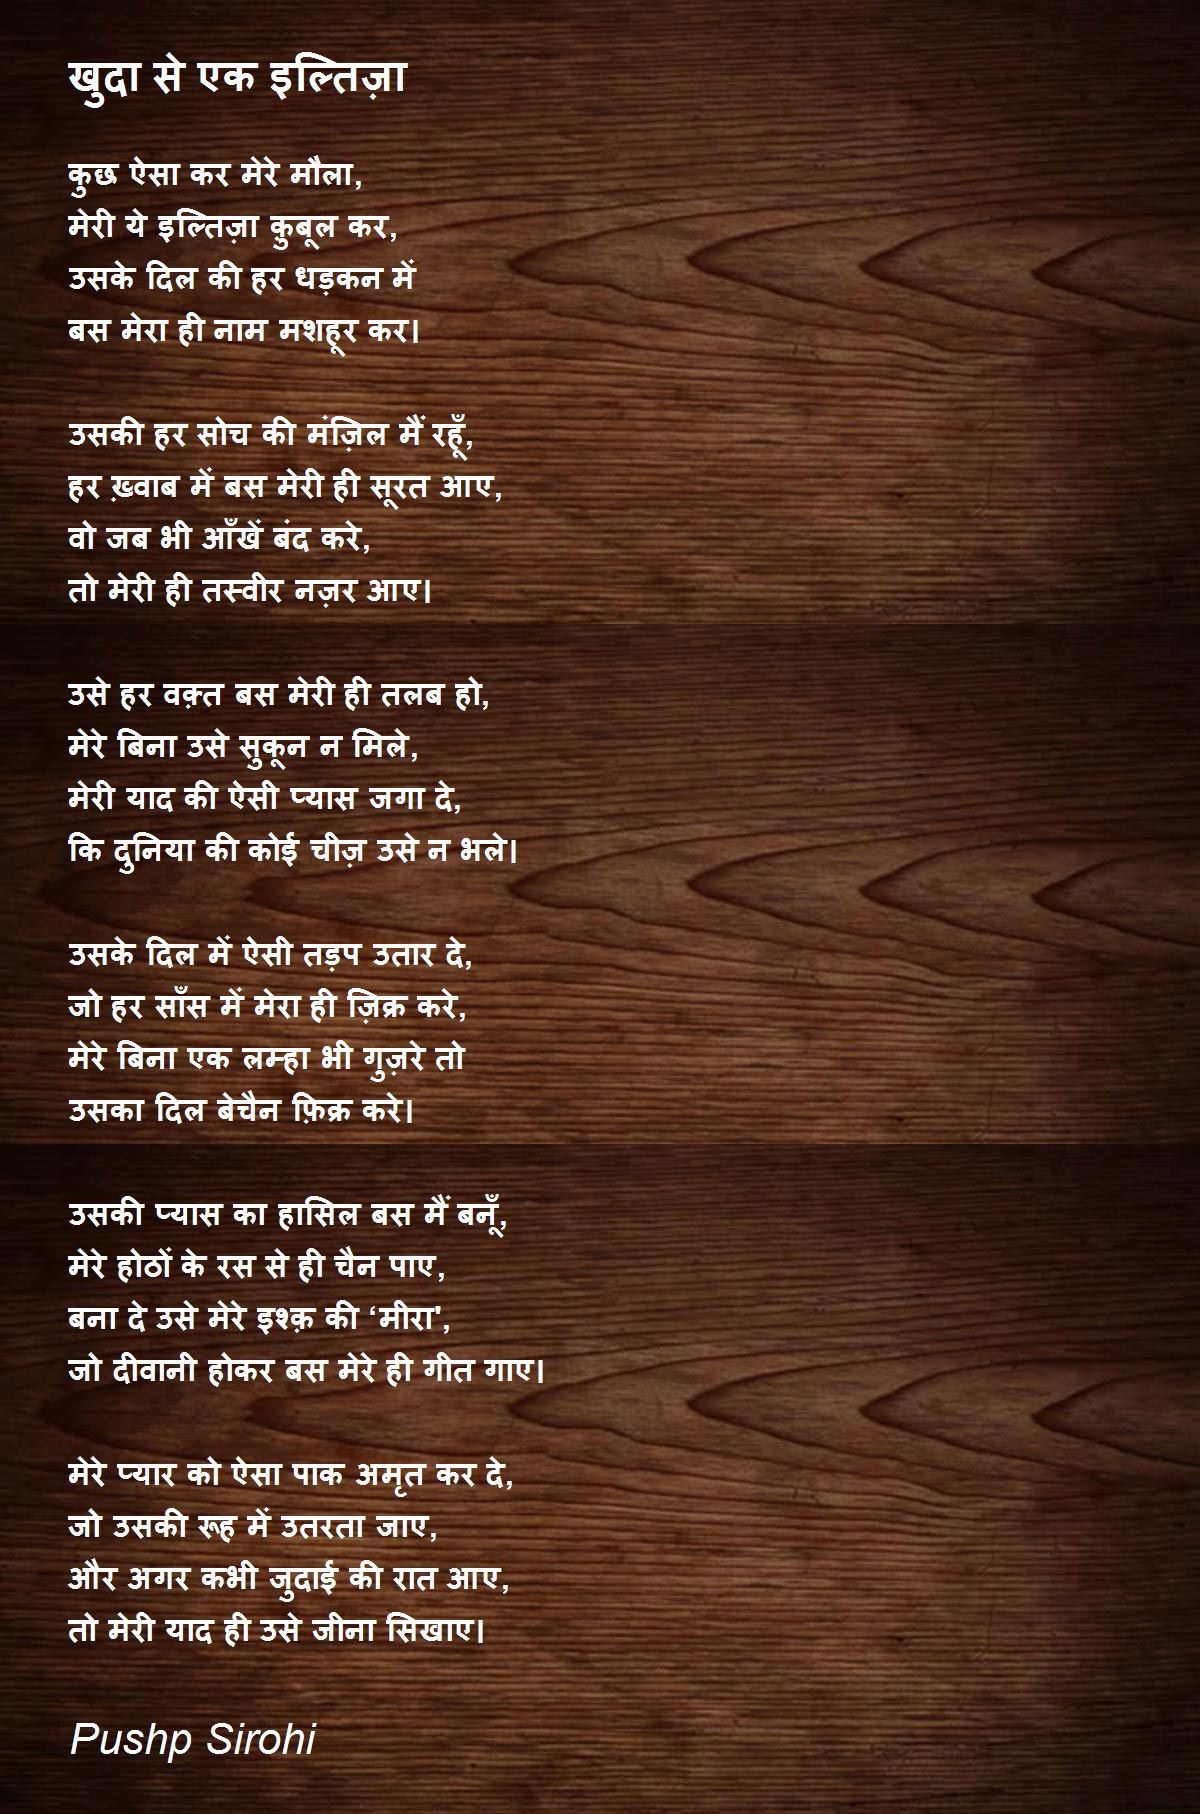 खुदा से एक इल्तिज़ा
कुछ ऐसा कर मेरे मौला,
मेरी ये इल्तिज़ा क़ुबूल कर,
उसके दिल की हर धड़कन में
बस मेरा ही नाम मशहूर कर।
उसकी हर सोच की मंज़िल मैं रहूँ,
हर ख़्वाब में बस मेरी ही सूरत आए,
वो जब भी आँखें बंद करे,
तो मेरी ही तस्वीर नज़र आए।
उसे हर वक़्त बस मेरी ही तलब हो,
मेरे बिना उसे सुकून न मिले,
मेरी याद की ऐसी प्यास जगा दे,
कि दुनिया की कोई चीज़ उसे न भले।
उसके दिल में ऐसी तड़प उतार दे,
जो हर साँस में मेरा ही ज़िक्र करे,
मेरे बिना एक लम्हा भी गुज़रे तो
उसका दिल बेचैन फ़िक्र करे।
उसकी प्यास का हासिल बस मैं बनूँ,
मेरे होठों के रस से ही चैन पाए,
बना दे उसे मेरे इश्क़ की ‘मीरा',
जो दीवानी होकर बस मेरे ही गीत गाए।
मेरे प्यार को ऐसा पाक अमृत कर दे,
जो उसकी रूह में उतरता जाए,
और अगर कभी जुदाई की रात आए,
तो मेरी याद ही उसे जीना सिखाए।
Pushp Sirohi